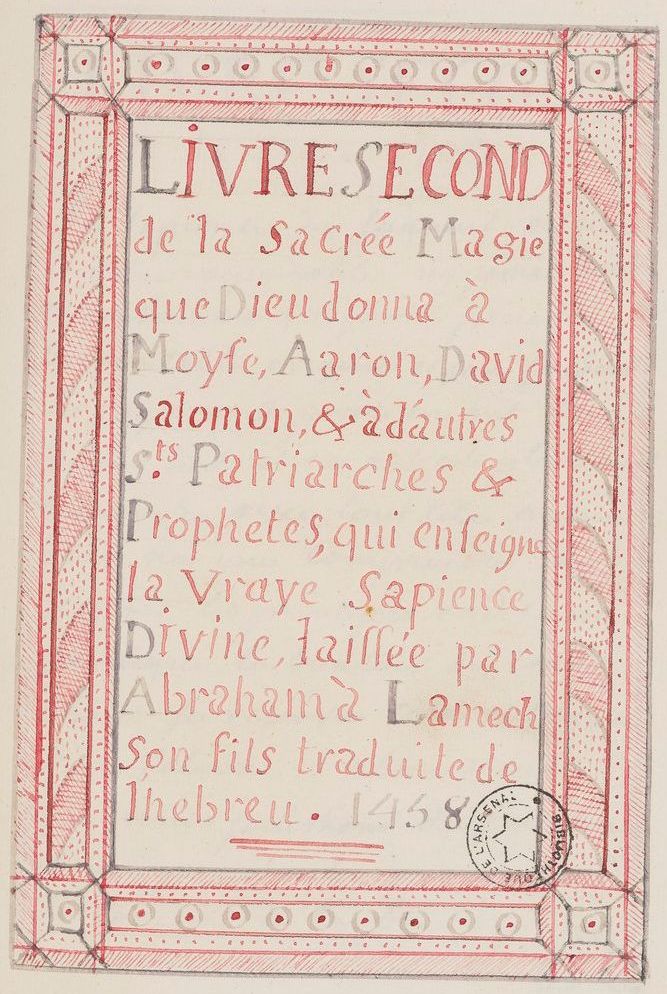 LiVRE SECOND
de la Sacréé Magie
que Dieu donna à
Moyſe, Aaron, David
Salomon, & à d'autres
S.ts Patriarches &
Prophetes, qui enſeigne
la Vraye Sapience
Divine, laiſſée par
Abraham à Lamech
Son fils traduite de
l'hebreu. 1458
BIBLIOTHÈQUE DE L'ARSENAL